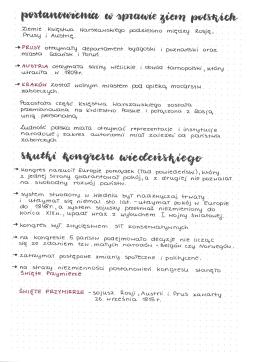 postanowienia w sprawie ziem polskich
Ziemie Księstwa Warszawskiego podzielono między Rosję,
Prusy i Austrię.
→ PRUSY otrzymały departament bydgoski i poznański oraz
miasta Gdańsk i Toruń
→ AUSTRIA otrzymała saliny wielickie i obwód tarnopolski, który
utraciła w 1809r.
→ KRAKÓW został wolnym miastem pod opieką mocarstw
zaborczych.
Pozostała część Księstwa Warszawskiego została
przemianowana na Królestwo Polskie i połączona z Rosją
unią personalną.
Ludność polska miała otrzymać reprezentacje i instytucje
narodowe; zakres autonomii miał zależeć od państwa
zaborczych.
skutki kongresu wiedeńskiego
→ kongres narzucił Europie porządek (ład powiedeński), który
z jednej strony gwarantował pokój, a z drugiej nie pozwalał
na swobodny rozwój państw.
→ system stworzony w Wiedniu był nadzwyczaj trwały
i utrzymał się niemal sto lat - utrzymał pokój w Europie
do 1848r., a system sojuszy przetrwał niezmieniony do
końca XIX w., upadł wraz z wybuchem I wojny światowej.
→ kongres był zwycięstwem sił konserwatywnych
→ na kongresie 5 państw podejmowało decyzje nie licząc
się ze zdaniem tzw. małych narodów - Belgów czy Norwegów.
→ zatrzymał postępowe zmiany społeczne i polityczne.
→ na straży niezmienności postanowień kongresu stanęło
Święte Przymierze
ŚWIĘTE PRZYMIERZE - sojusz Rosji, Austrii i Prus zawarty
26 września 1815r.